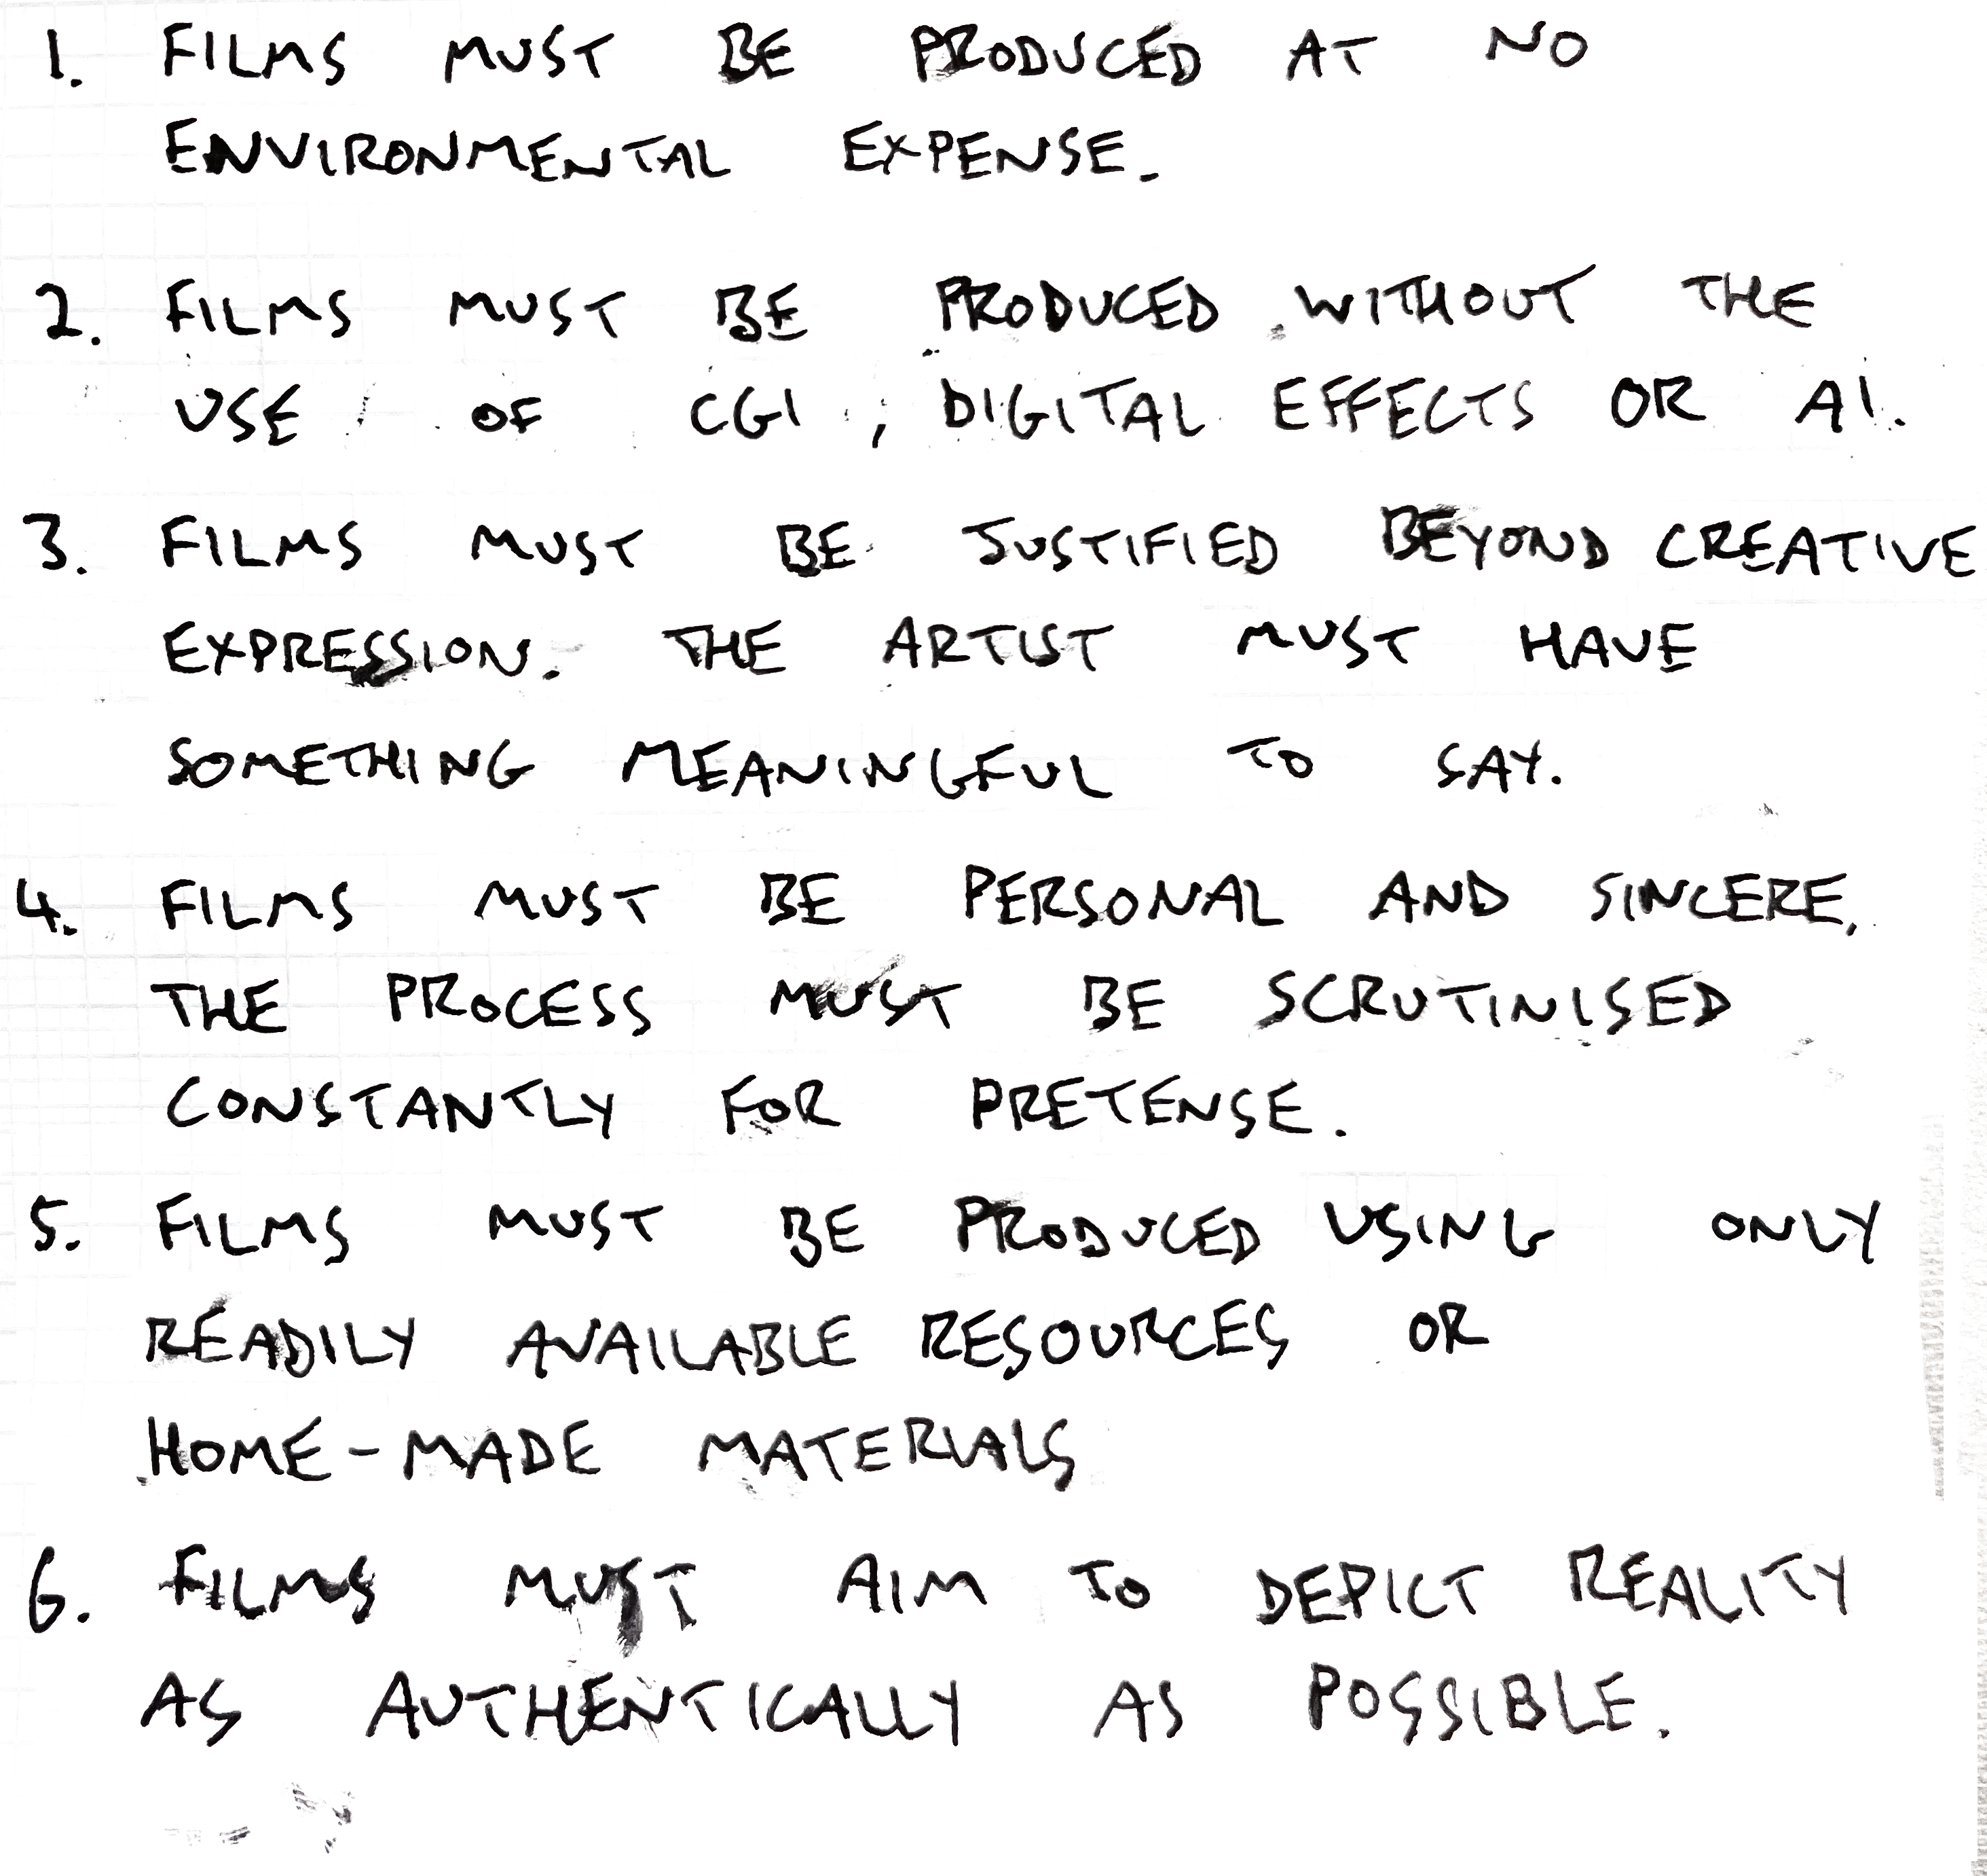 1. FILMS MUST BE PRODUCED AT NO
ENVIRONMENTAL EXPENSE.
2. FILMS MUST BE PRODUCED WITHOUT THE
USE OF CGI, DIGITAL EFFECTS OR AI.
3. FILMS MUST BE JUSTIFIED BEYOND CREATIVE
EXPRESSION. THE ARTIST MUST HAVE
SOMETHING MEANINGFUL TO SAY.
4. FILMS MUST BE PERSONAL AND SINCERE,
THE PROCESS MUST BE SCRUTINISED
CONSTANTLY FOR PRETENSE.
5. FILMS MUST BE PRODUCED USING ONLY
READILY AVAILABLE RESOURCES OR
HOME-MADE MATERIALS
6. FILMS MUST AIM TO DEPICT REALITY
AS AUTHENTICALLY AS POSSIBLE.